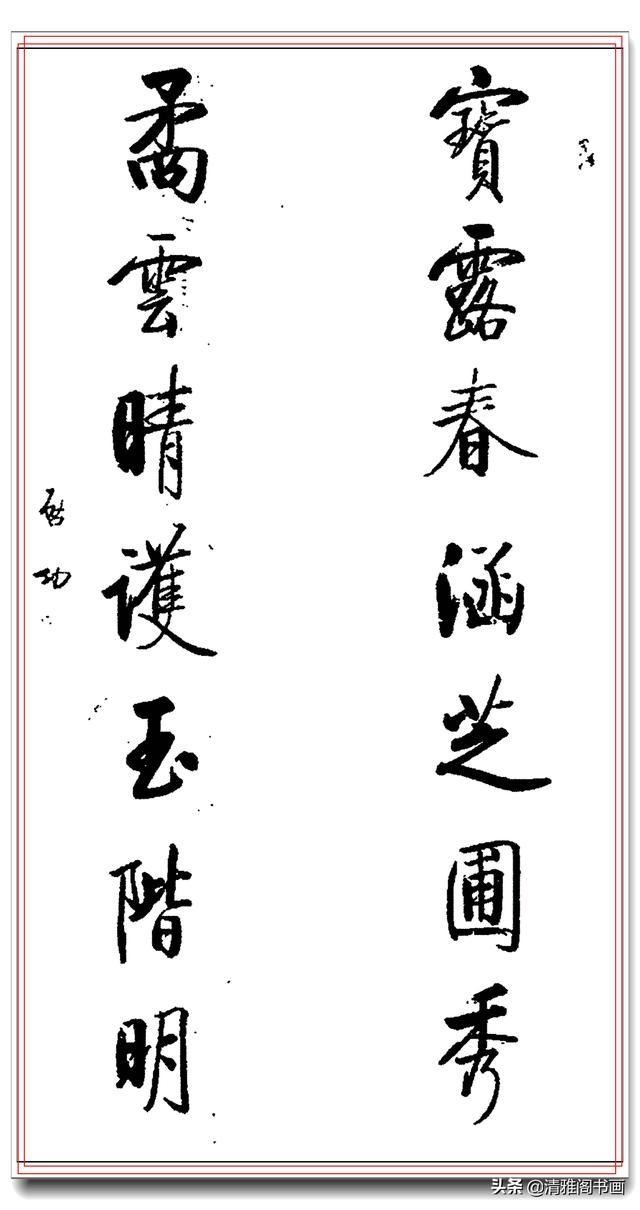 寶露春涵芝圃秀
矞雲晴護玉階明
啟功
头条 @清雅阁书画